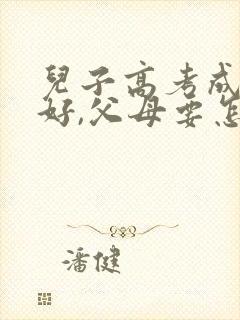 兒子高考成
好,父母要怎
潘健